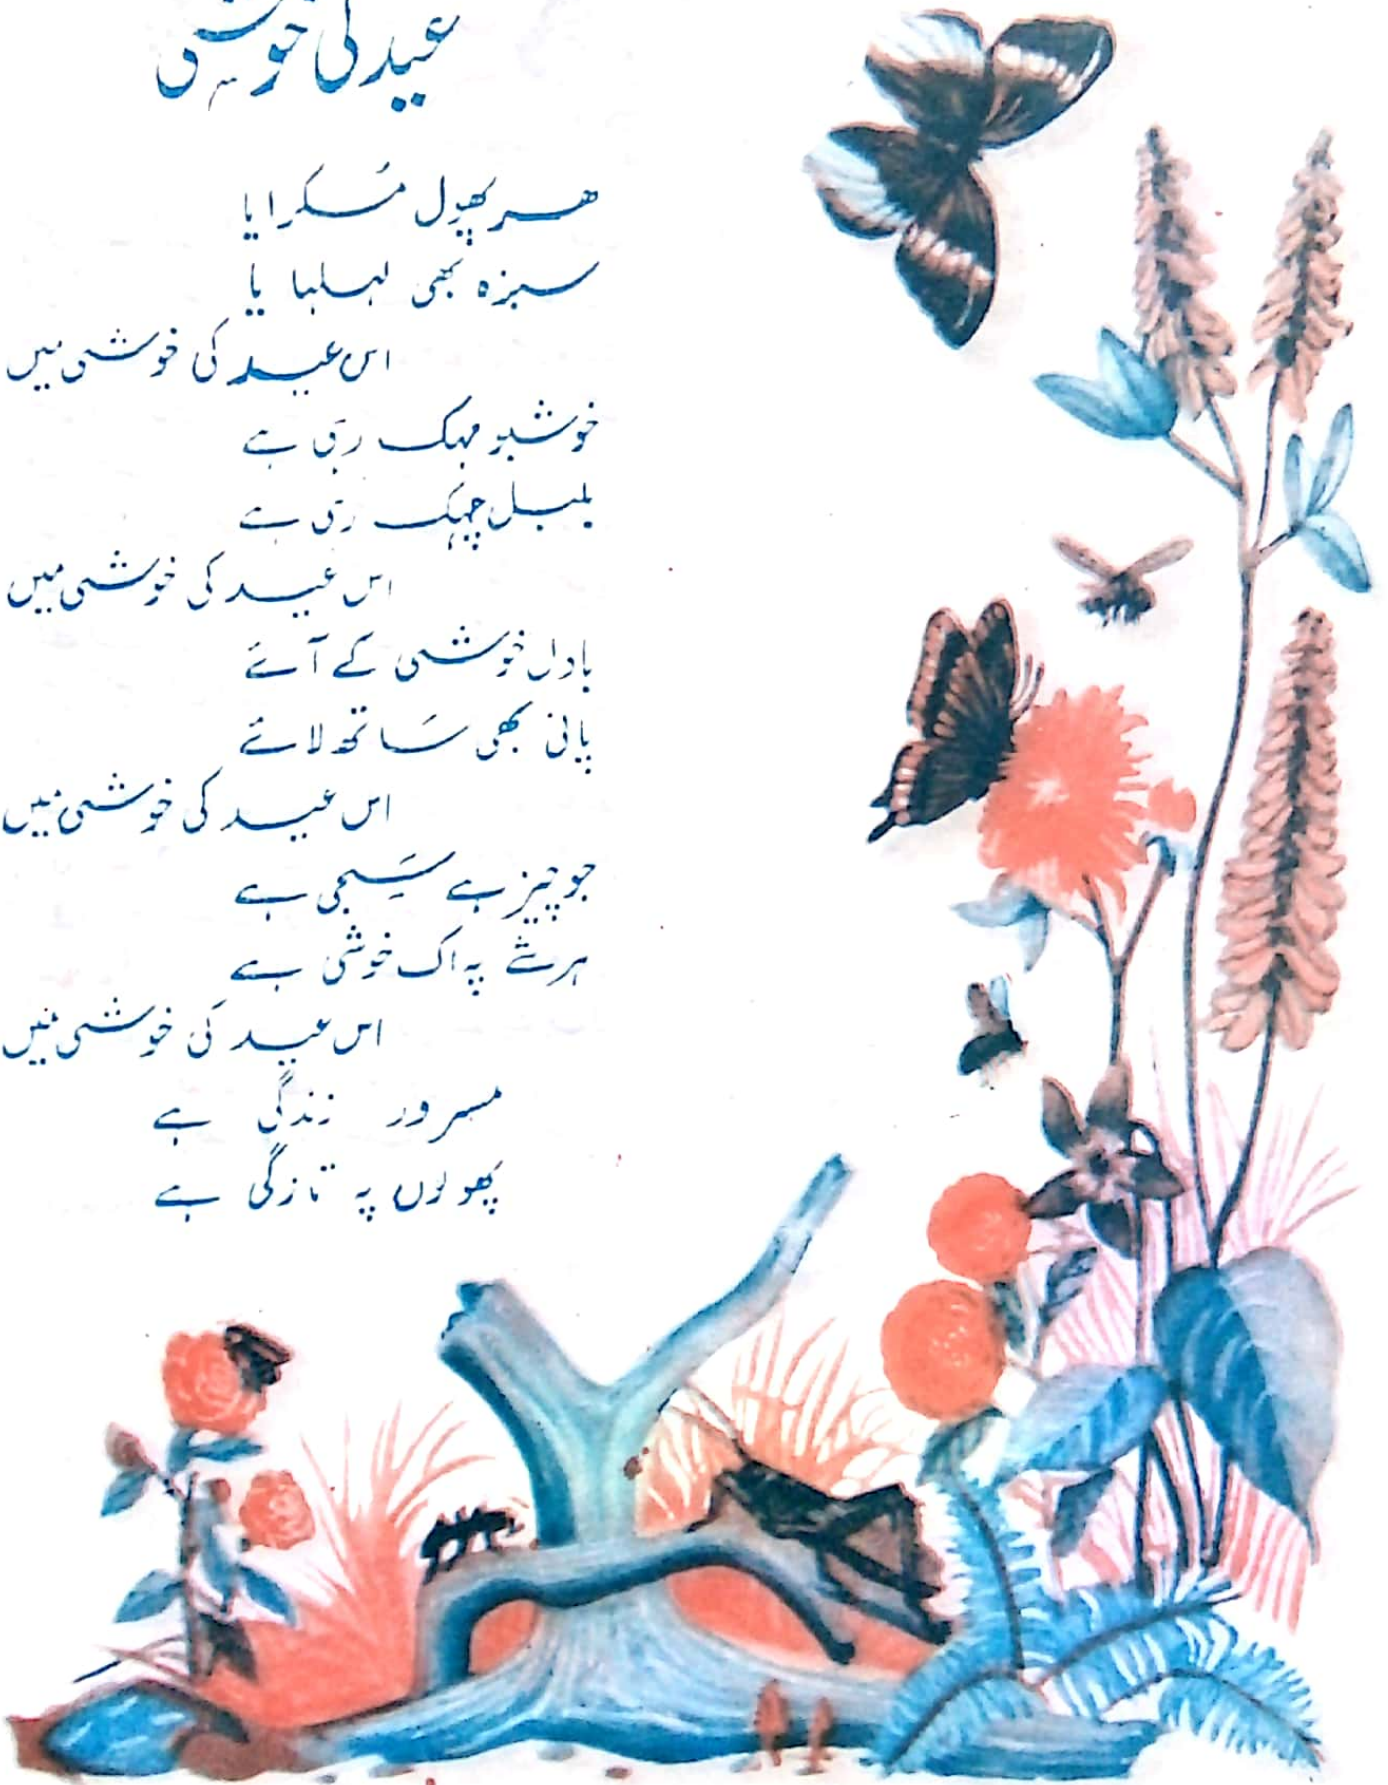 عید کی خوشی
ہر پھول مُسکرایا
سبزہ بھی لہلہایا
اس عید کی خوشی میں
خوشبو مہک رہی ہے
بلبل چہک رہی ہے
اس عید کی خوشی میں
بادل خوشی کے آئے
پانی بھی سَاتھ لائے
اس عید کی خوشی میں
جو چیز ہے سَجی ہے
ہر شے پہ اک خوشی ہے
اس عید کی خوشی میں
مسرور زندگی ہے
پھولوں پہ تازگی ہے